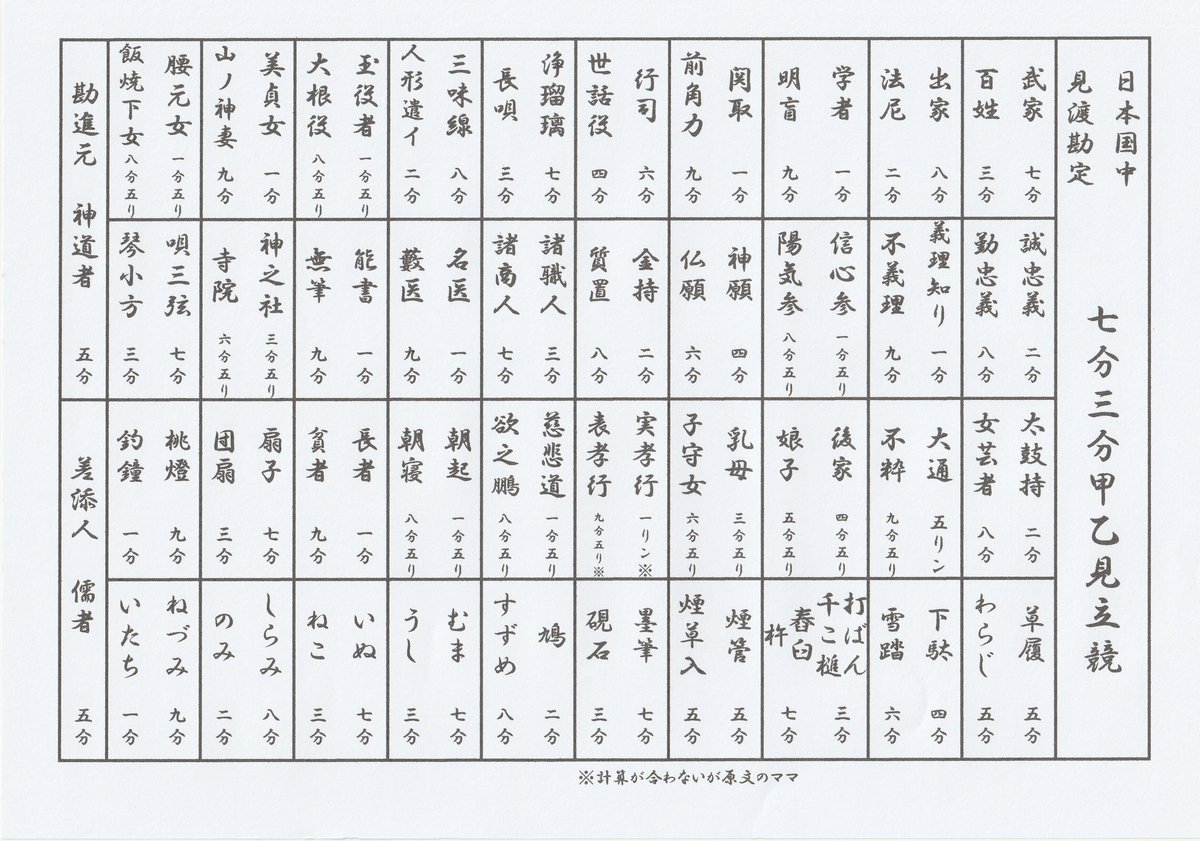 日本国中
見渡勘定
七分三分甲乙見立競
武家 七分
百姓 三分
出家 八分
法尼 二分
学者 一分
明盲 九分
関取 一分
前角力 九分
行司 六分
世話役 四分
浄瑠璃 七分
長唄 三分
三味線 八分
人形遣イ 二分
玉役者 一分五り
大根役 八分五り
美貞女 一分
山ノ神妻 九分
腰元女 一分五り
飯焼下女 八分五り
誠忠義 二分
勤忠義 八分
義理知り 一分
不義理 九分
信心参 一分五り
陽気参 八分五り
神願 四分
仏願 六分
金持 二分
質置 八分
諸職人 三分
諸商人 七分
名医 一分
藪医 九分
能書 一分
無筆 九分
神之社 三分五り
寺院 六分五り
唄三弦 七分
琴小方 三分
太鼓持 二分
女芸者 八分
大通 五リン
不粋 九分五り
後家 四分五り
娘子 五分五り
乳母 三分五り
子守女 六分五り
実孝行 一リン※
表孝行 九分五り※
慈悲道 一分五り
欲之鵬 八分五り
朝起 一分五り
朝寝 八分五り
長者 一分
貧者 九分
扇子 七分
団扇 三分
桃燈 九分
釣鐘 一分
草履 五分
わらじ 五分
下駄 四分
雪踏 六分
打ばん
千こ槌 三分
舂臼
杵 七分
煙管 五分
煙草入 五分
墨筆 七分
硯石 三分
鳩 二分
すずめ 八分
むま 七分
うし 三分
いぬ 七分
ねこ 三分
しらみ 八分
のみ 二分
ねづみ 九分
いたち 一分
勘進元 神道者 五分
差添人 儒者 五分
※計算が合わないが原文のママ